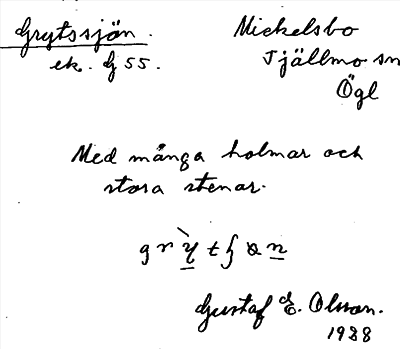 Grytssjön.
ek. G 55.
Mickelsbo
Tjällmo sn
Ögl
Med många holmar och
stora stenar.
Gustaf E. Olsson.
1928